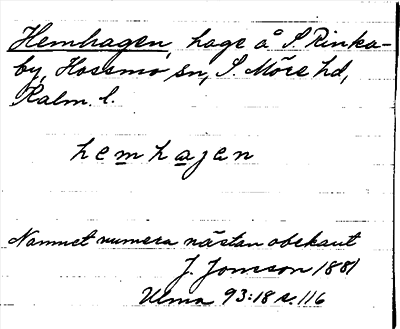 Hemhagen, hage å S. Rinka-
by, Hossmo sn, S. Möre hd,
Kalm. l.
hemhagen
Namnet numera nästan obekant
J. Jonsson 1881
Ulma 93:18 s. 116